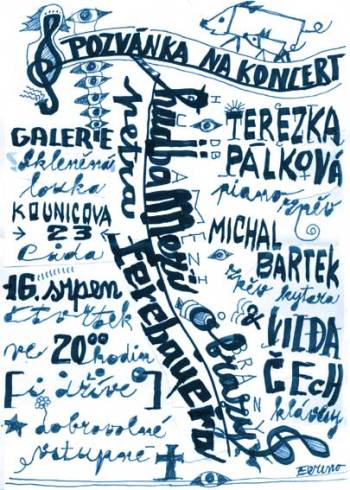 POZVÁNKA NA KONCERT
GALERIE
skleněná
louka
KOUNICOVA
→ 23
16. srpen
čtvrtek
ve 20⁰⁰ hodin
[i dříve]
dobrovolné
vstupné
hudba mezi obrazy
Petra Ferebauera
HUDBA MEZI OBRAZY
TEREZKA
PÁLKOVÁ
piano zpěv
MICHAL
BARTEK
zpěv kytara
& VILDA
ČECH
klávesy